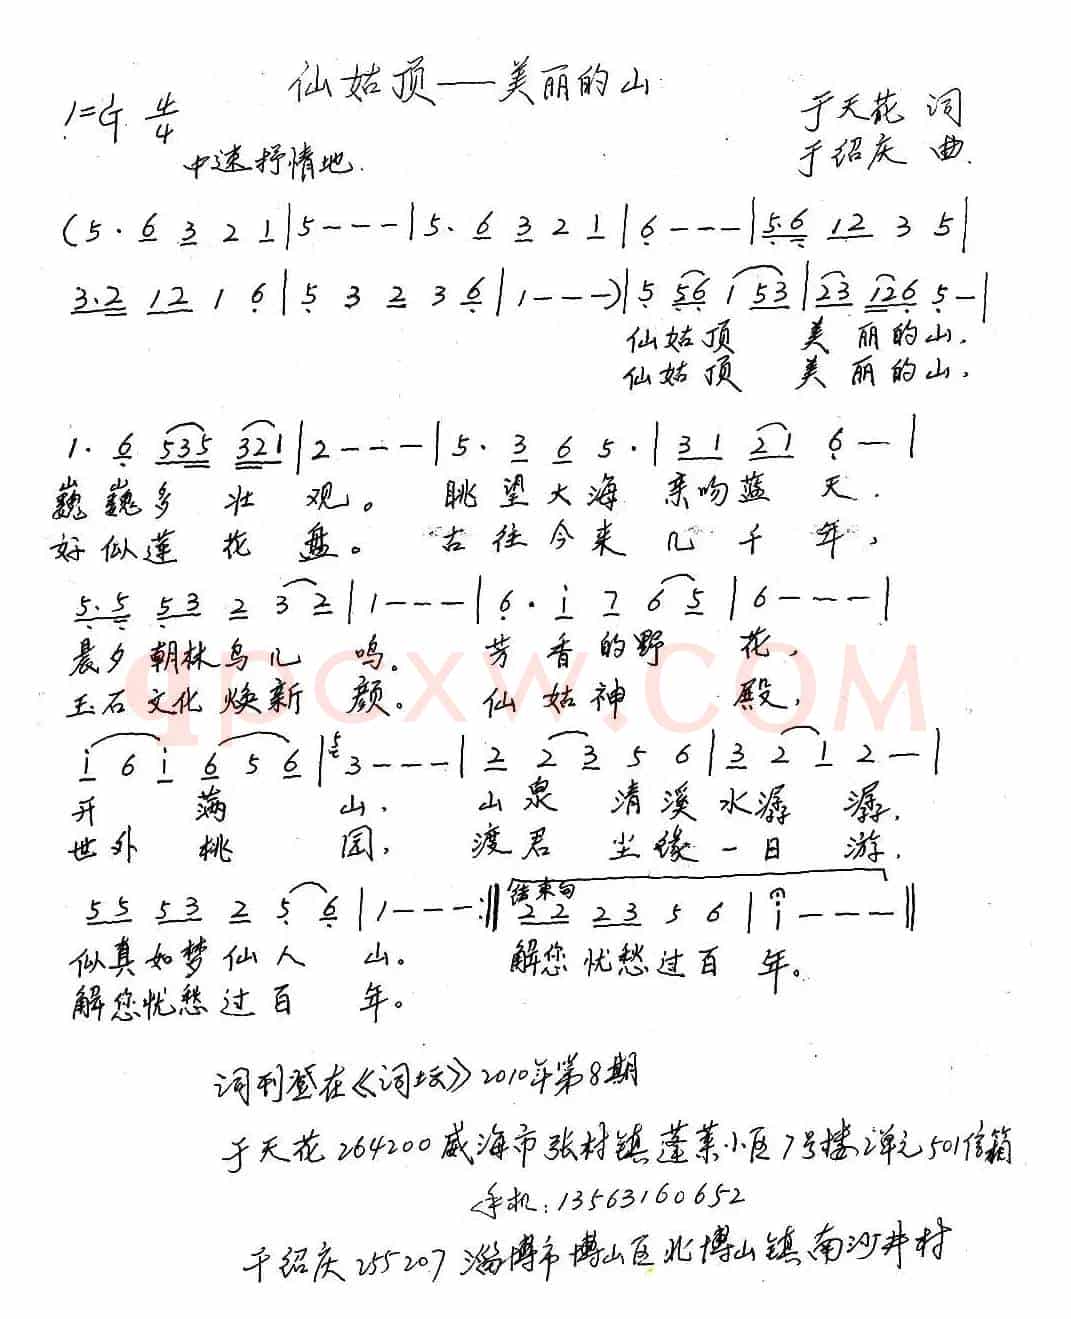 仙姑顶——美丽的山
1=G 4/4
于天花 词
中速抒情地.
于绍庆 曲.
(5. 6 3 2 1|5---|5. 6 3 2 1|6---|5.6 12 3 5|
3.2 12 1 6|5 3 2 3 6|1---)|5 56 1 53|23 126 5-|
仙姑顶 美丽的山.
仙姑顶 美丽的山,
1. 6 535 321|2---|5. 3 6 5.|31 21 6-|
巍巍多壮观。 眺望大海亲吻蓝天.
好似莲花盘。 古往今来几千年,
5.5 53 2 3 2|1---|6. i 7 6 5|6---|
晨夕朝林鸟儿鸣。 芳香的野花,
玉石文化焕新颜。 仙姑神殿,
qpcxw.com
i 6 i 6 5 6|5 3---|2 2 3 5 6|3 2 1 2-|
开满山. 山泉清溪水潺潺,
世外桃园, 渡君尘缘一日游.
结束句
55 53 2 5 6|1---:‖22 23 5 6|i---‖
似真如梦仙人山。 解您忧愁过百年。
解您忧愁过百年。
词刊登在《词坛》2010年第8期
于天花 264200 威海市张村镇蓬莱小区7号楼2单元501信箱
手机:13563160652
于绍庆 255207 淄博市博山区北博山镇南沙井村